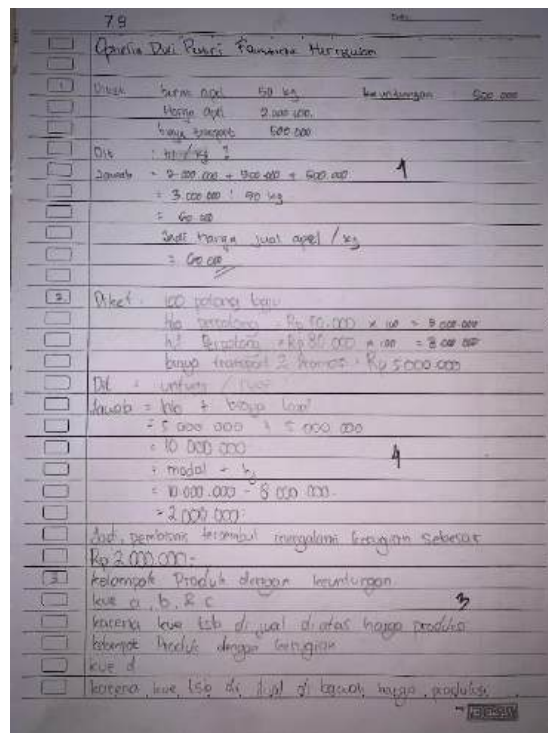 79
1 Diket : berat apel 50 kg keuntungan 500.000
Harga apel 2.000.000.
biaya transport 500.000
Dit : hj/kg ?
Jawab = 2.000.000 + 500.000 + 500.000 1
= 3.000.000 : 50 kg
= 60.000
Jadi harga jual apel / kg
= 60.000
2. Diket : 100 potong baju
hb perpotong = Rp 50.000 x 100 = 5.000.000
hj perpotong = Rp 80.000 x 100 = 8.000.000
biaya transport 2 Promosi = Rp 5.000.000
Dit : untung / rugi
Jawab = hb + biaya
= 5.000.000 + 5.000.000
= 10.000.000 4
= modal - hj
= 10.000.000 - 8.000.000.
= 2.000.000
Jadi, pembisnis tersembut mengalami kerugian sebesar
Rp 2.000.000.-
3 kelompok Produk dengan keuntungan
kue a, b, & c 3
karena kue tsb di jual diatas harga produksi
kelompok Produk dengan kerugian
kue d
karena kue tsb di jual di bawah harga produksi